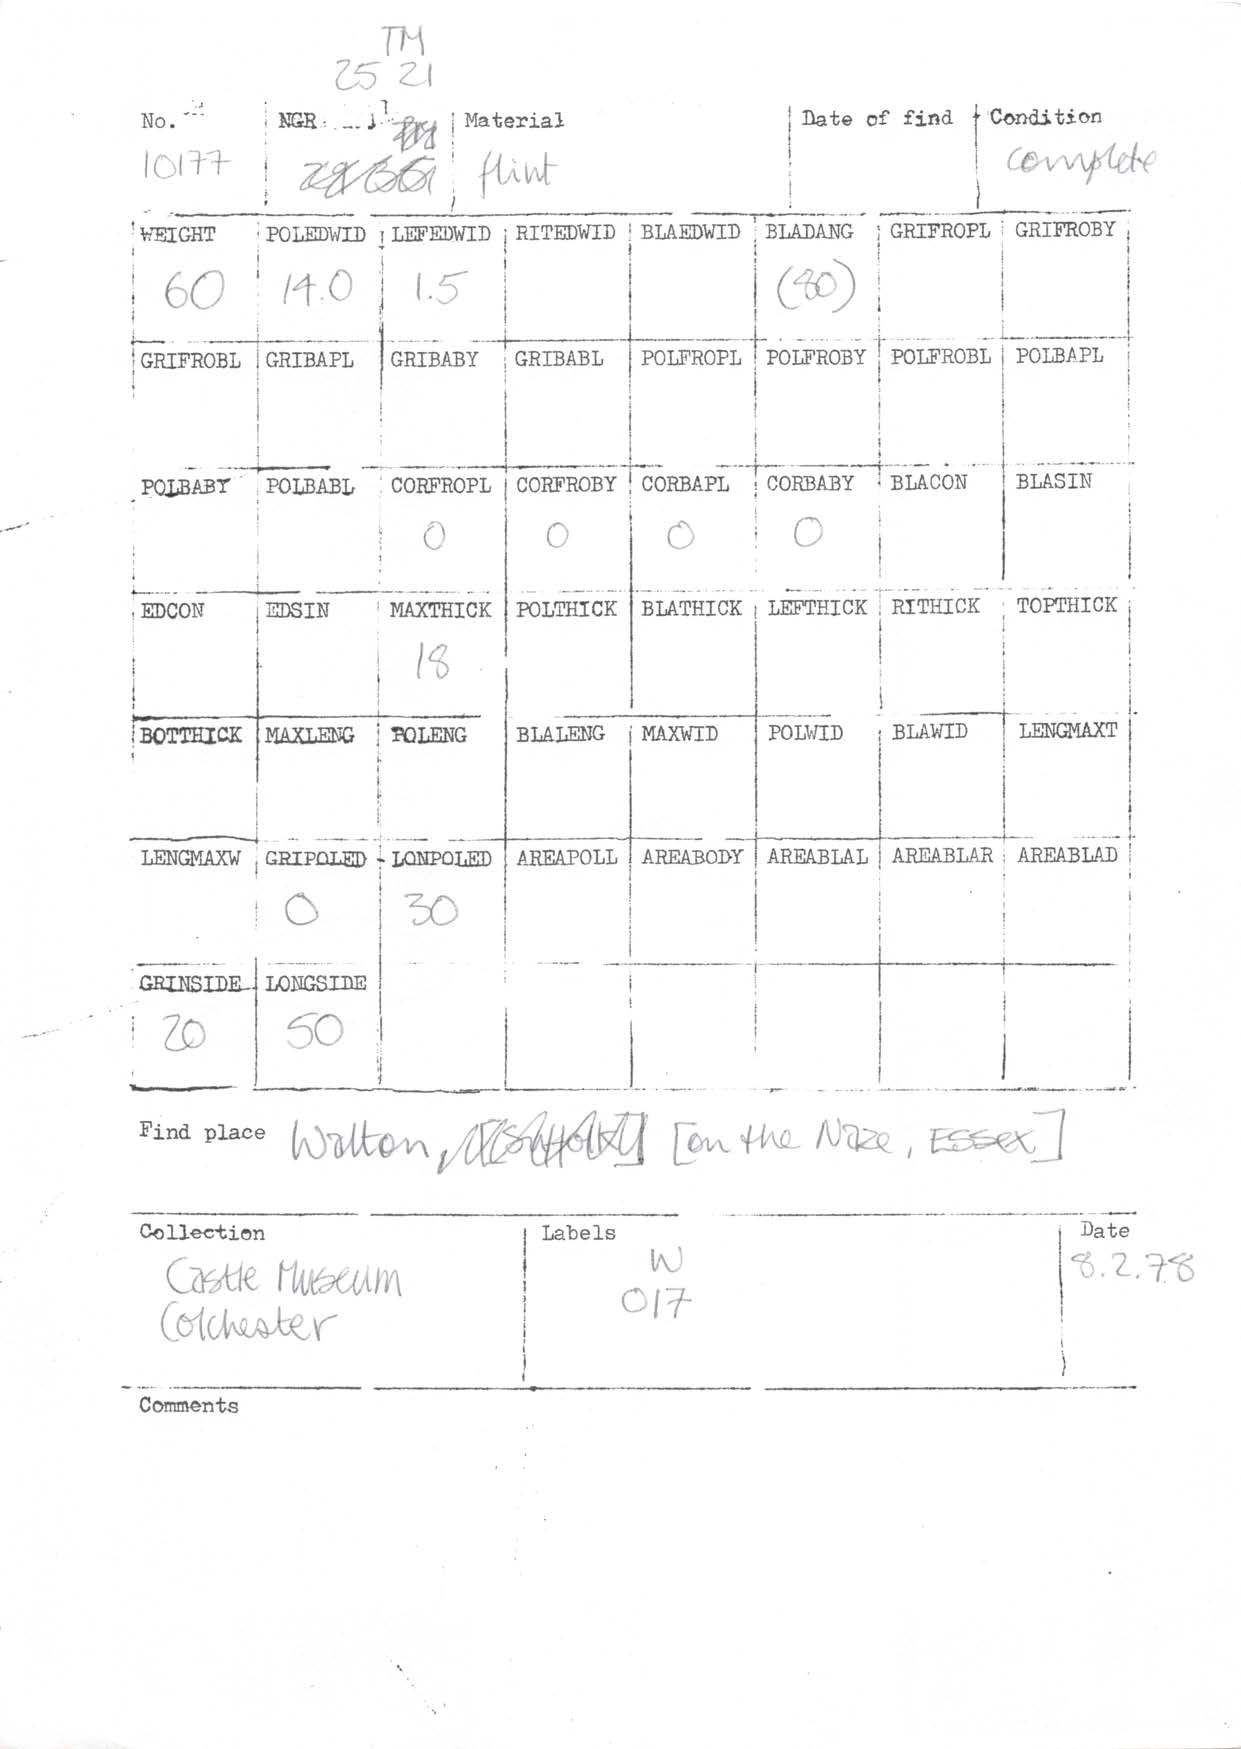 TM
25 21
No. NGR Material Date of find Condition
10177 flint complete
WEIGHT POLEDWID LEFEDWID RITEDWID BLAEDWID BLADANG GRIFROPL GRIFROBY
60 14.0 1.5 (80)
GRIFROBL GRIBAPL GRIBABY GRIBABL POLFROPL POLFROBY POLFROBL POLBAPL
POLBABY POLBABL CORFROPL CORFROBY CORBAPL CORBABY BLACON BLASIN
0 0 0 0
EDCON EDSIN MAXTHICK POLTHICK BLATHICK LEFTHICK RITHICK TOPTHICK
18
BOTTHICK MAXLENG POLENG BLALENG MAXWID POLWID BLAWID LENGMAXT
LENGMAXW GRIPOLED LONPOLED AREAPOLL AREABODY AREABLAL AREABLAR AREABLAD
0 30
GRINSIDE LONGSIDE
20 50
Find place Walton, [on the Naze, Essex]
Collection Labels Date
Castle Museum W 8.2.78
Colchester 017
Comments